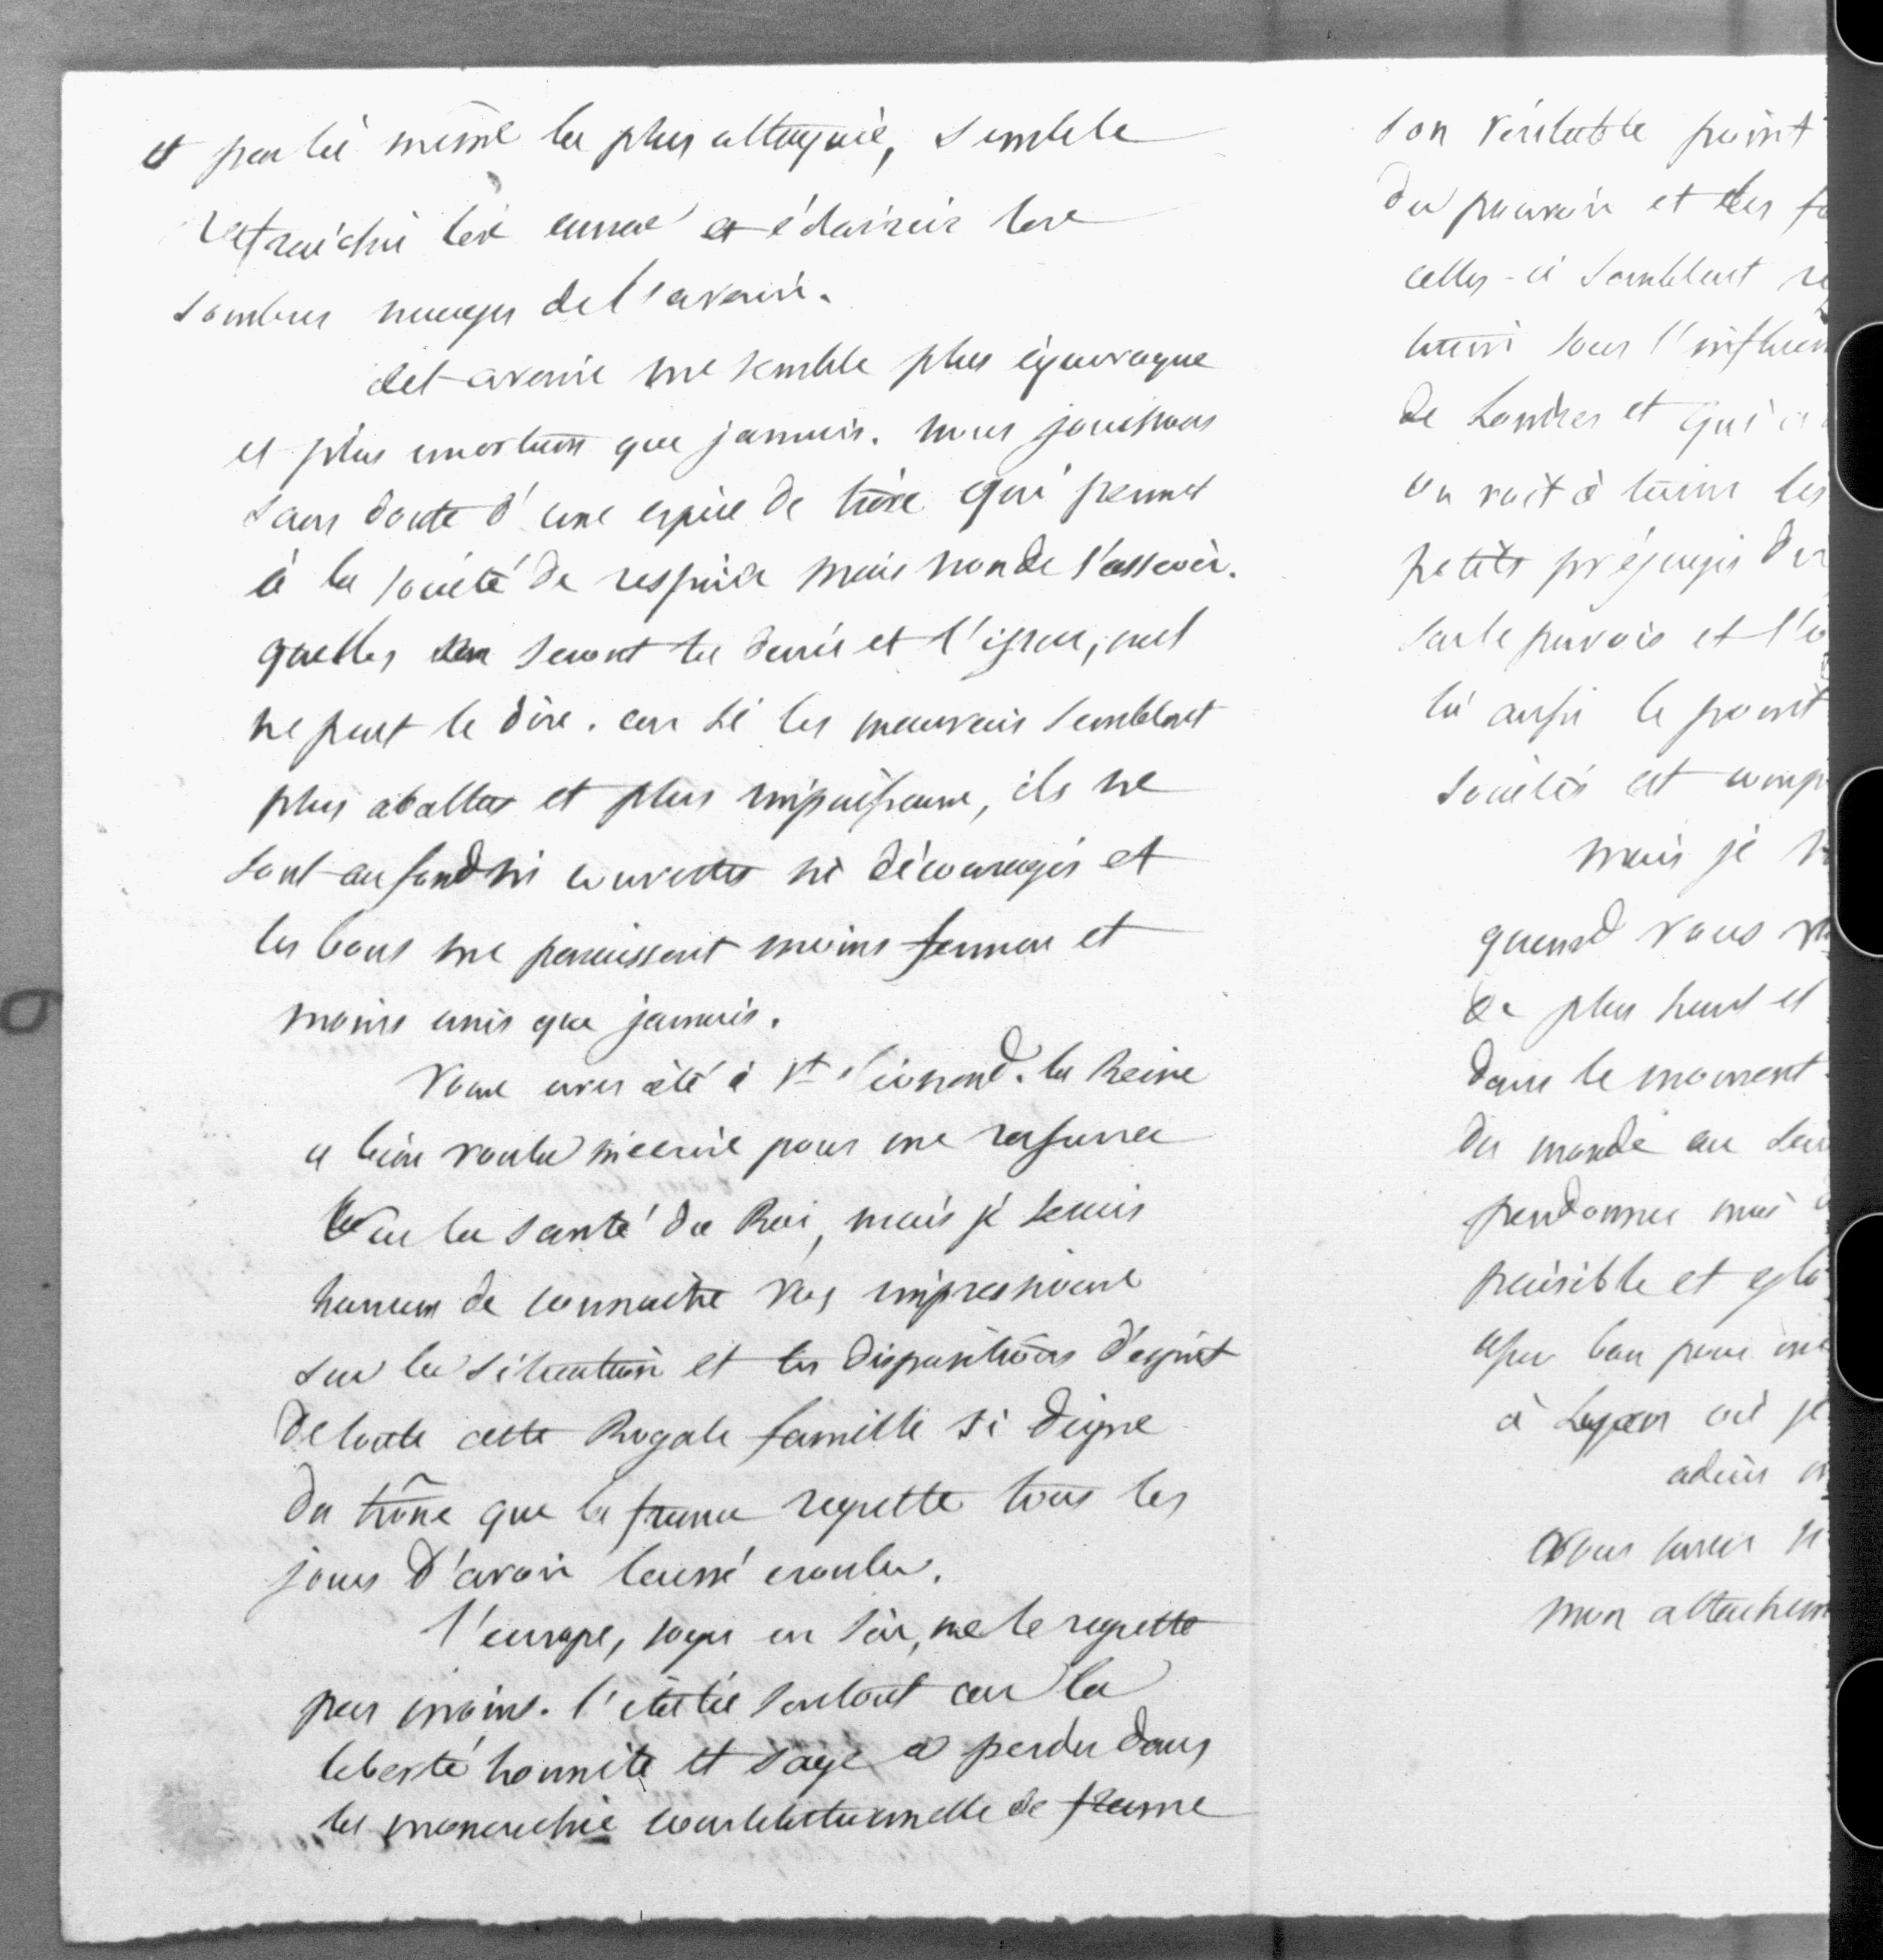 et par là même la plus attaquée, semble
rafraichir les ames et éclaircir les
sombres nuages de l'avenir.
Cet avenir me semble plus équivoque
et plus incertain que jamais. nous jouissons
sans doute d'une espèce de trève qui permet
à la société de respirer mais non de s'asseoir.
quelles en seront la durée et l'issue, nul
ne peut le dire. car si les mauvais semblent
plus abattus et plus impuissans, ils ne
sont au fond ni convertis ni découragés et
les bons me paraissent moins fermes et
moins unis que jamais.
Vous avez été à St Léonard. la Reine
a bien voulu m'écrire pour me rassurer
sur la santé du Roi, mais je serais
heureux de connaitre vos impressions
sur la situation et les dispositions d'esprit
de toute cette Royale famille si digne
du trône que la france regrette tous les
jours d'avoir laissé crouler.
l'europe, soyez en sûr, ne le regrette
pas moins. l'italie surtout car la
liberté honnête et sage a perdu dans
la monarchie constitutionnelle de france
son véritable point
du pouvoir et des
celles-ci semblent
sous l'influen
de Londres et qui
on voit à turin les
petits préjugés
sur le pavois et
là aussi le point
sociétés est
mais je
quand vous
de plus haut et
dans le moment
du monde au
pardonnez moi
paisible et
assez bon pour
à Lyon où je
adieu
vous savez
mon attachem